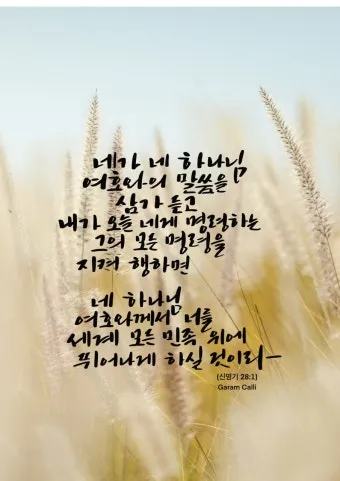 네가 네 하나님
여호와의 말씀을
삼가 듣고
내가 오늘 네게 명령하는
그의 모든 명령을
지켜 행하면
네 하나님
여호와께서 너를
세계 모든 민족 위에
뛰어나게 하실 것이라
(신명기 28:1)
Garam Calli